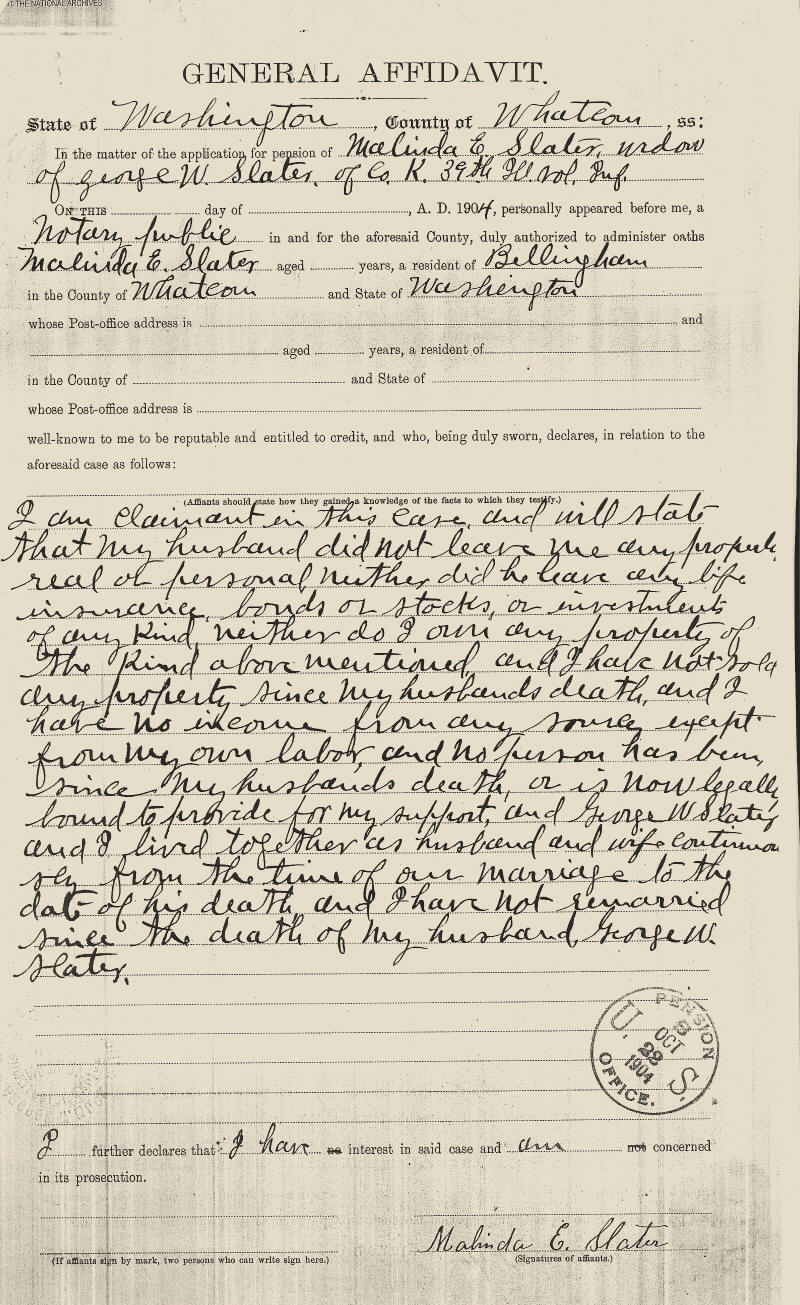 AT THE NATIONAL ARCHIVES
GENERAL AFFIDAVIT.
State of Washington, County of Whatcom, ss:
In the matter of the application for pension of Malinda E. Slater, widow
of george W. Slater, of Co. K. 39th Ill vol. Inf.
ON THIS day of , A. D. 1904, personally appeared before me, a
Notary public in and for the aforesaid County, duly authorized to administer oaths
Malinda E. Slater aged years, a resident of Bellingham
in the County of Whatcom and State of Washington
whose Post-office address is and
aged years, a resident of
in the County of and State of
whose Post-office address is
well-known to me to be reputable and entitled to credit, and who, being duly sworn, declares, in relation to the
aforesaid case as follows:
(Affiants should state how they gained a knowledge of the facts to which they testify.)
I am Claimant in this case, and will state
that my husband did not leave me any property
real or personal neither did he leave any life
insurance, bonds or stocks, or investments
of any Kind, neither do I own any property of
the Kind above mentioned, and I have not sold
any property since my husbands death, and I
have no income from any source except
from my own labor, and no person has been,
since my husbands death, or is now legally
bound to provide for my support, and George W Slater
and I lived together as husband and wife continuou
sly from the time of our marriage to the
date of his death, and I have not remarried
since the death of my husband, George W.
Slater.
U. S. PENSION OFFICE.
OCT 22 1904
I further declares that I have no interest in said case and am not concerned
in its prosecution.
Malinda E. Slater
(If affiants sign by mark, two persons who can write sign here.) (Signatures of affiants.)